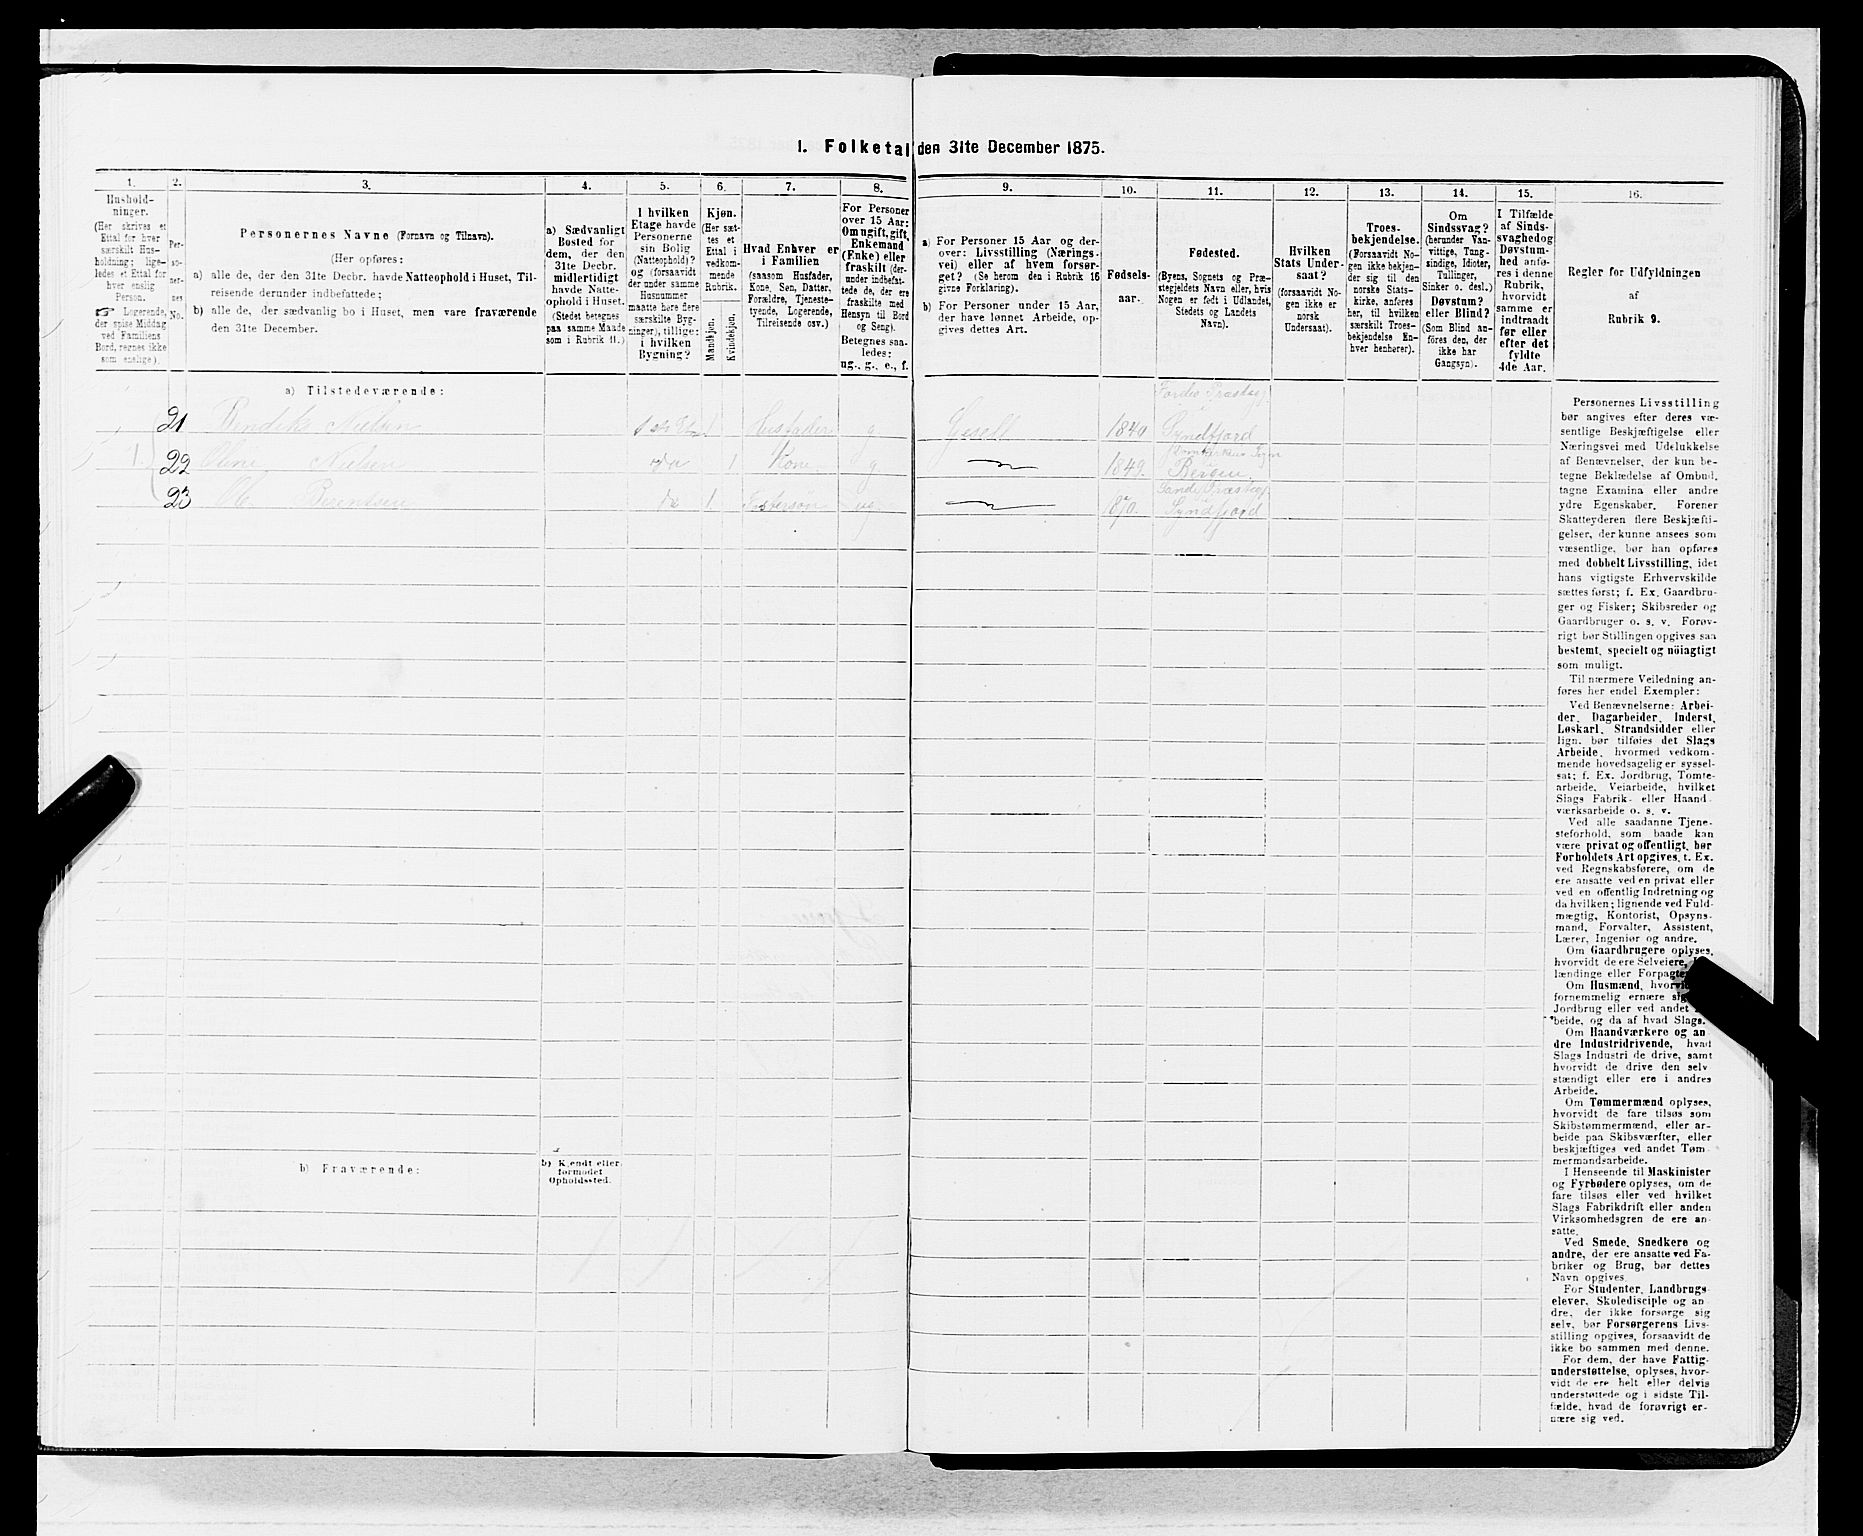 I. Folketal den 31te December 1875.
1.
Hushold-
ninger.
(Her skrives et
Ettal for hver
særskilt Hus-
holdning; lige-
ledes et Ettal for
hver enslig
Person.
Logerende,
der spise Middag
ved Familiens
Bord, regnes ikke
som enslige).
2.
Per-
so-
ner-
nes
No.
3.
Personernes Navne (Fornavn og Tilnavn).
(Her opføres:
a) alle de, der den 31te Decbr. havde Natteophold i Huset, Til-
reisende derunder indbefattede;
b) alle de, der sædvanlig bo i Huset, men vare fraværende
den 31te December.
4.
a) Sædvanligt
Bosted for
dem, der den
31te Decbr.
midlertidigt
havde Natte-
ophold i Huset.
(Stedet betegnes
paa samme Maade
som i Rubrik 11.)
5.
I hvilken
Etage havde
Personerne
sin Bolig
(Natteophold)?
og (forsaavidt
der under samme
Husnummer
maatte høre flere
særskilte Byg-
ninger), tillige:
i hvilken
Bygning?
6.
Kjøn.
(Her sæt-
tes et
Ettal i
vedkom-
mende
Rubrik.
Mandkjøn.
Kvindekjøn.
7.
Hvad Enhver er
i Familien
(saasom Husfader,
Kone, Søn, Datter,
Forældre, Tjeneste-
tyende, Logerende,
Tilreisende osv.)
8.
For Personer
over 15 Aar:
Om ugift, gift,
Enkemand
(Enke) eller
fraskilt (der-
under indbefat-
tede de, der ere
fraskilte med
Hensyn til Bord
og Seng).
Betegnes saa-
ledes:
ug., g., e., f.
9.
a) For Personer 15 Aar og der-
over: Livsstilling (Nærings-
vei) eller af hvem forsør-
get? (Se herom den i Rubrik 16
givne Forklaring).
b) For Personer under 15 Aar,
der have lønnet Arbeide, op-
gives dettes Art.
10.
Fødsels-
aar.
11.
Fødested.
(Byens, Sognets og Præ-
stegjeldets Navn eller, hvis
Nogen er født i Udlandet,
Stedets og Landets
Navn).
12.
Hvilken
Stats Under-
saat?
(forsaavidt No-
gen ikke er
norsk
Undersaat).
13.
Troes-
bekjendelse.
(Forsaavidt No-
gen ikke bekjen-
der sig til den
norske Stats-
kirke, anføres
her, til hvilken
særskilt Troes-
bekjendelse En-
hver henhører).
14.
Om
Sindssvag?
(herunder Van-
vittige, Tung-
sindige, Idioter,
Tullinger,
Sinker o. desl.)
Døvstum?
eller Blind?
(Som Blind an-
føres den, der
ikke har
Gangsyn).
15.
I Tilfælde
af Sinds-
svaghed og
Døvstum-
hed anfø-
res i denne
Rubrik,
hvorvidt
samme er
indtraadt
før eller
efter det
fyldte
4de Aar.
16.
Regler for Udfyldningen
af
Rubrik 9.
a) Tilstedeværende:
21 Bendiks Nielsen 1 Husfader g Gesell 1840 Førdes Præstegj. Syndfjord
1. 22 Oline Nielsen do 1 Kone g 1849. Domkirkens Sogn Bergen
23 Berentsen do 1 ug 1870. Syndfjord
b) Fraværende:
b) Kjendt eller
formodet
Opholdssted.
Personernes Livsstilling
bør angives efter deres væ-
sentlige Beskjæftigelse eller
Næringsvei med Udelukkelse
af Benævnelser, der kun be-
tegne Beklædelse af Ombud,
tagne Examina eller andre
ydre Egenskaber. Forener
Skatteyderen flere Beskjæfti-
gelser, der kunne ansees som
væsentlige, bør han opføres
med dobbelt Livsstilling, idet
hans vigtigste Erhvervskilde
sættes først; f. Ex. Gaardbru-
ger og Fisker; Skibsreder og
Gaardbruger o. s. v. Forøv-
rigt bør Stillingen opgives saa
bestemt, specielt og nöiagtigt
som muligt.
Til nærmere Veiledning an-
føres her endel Exempler:
Ved Benævnelserne: Arbei-
der, Dagarbeider, Inderst,
Løskarl, Strandsidder eller
lign. bør tilføies det Slags
Arbeide, hvormed vedkom-
mende hovedsagelig er syssel-
sat; f. Ex. Jordbrug, Tomte-
arbeide, Veiarbeide, hvilket
Slags Fabrik- eller Haand-
værksarbeide o. s. v.
Ved alle saadanne Tjene-
steforhold, som baade kan
være privat og offentligt, bør
Forholdets Art opgives, t. Ex.
ved Regnskabsførere, om de
ere ansatte ved en privat eller
ved en offentlig Indretning og
da hvilken; lignende ved Fuld-
mægtig, Kontorist, Opsyns-
mand, Forvalter, Assistent,
Lærer, Ingeniør og andre.
Om Gaardbrugere oplyses,
hvorvidt de ere Selveiere,
lændinge eller
Om Husmænd,
fornemmelig ernære
Jordbrug eller ved andet
beide, og da af hvad Slags.
Om Haandværkere og an
dre Industridrivende, hvad
Slags Industri de drive, samt
hvorvidt de drive den selv
stændigt eller ere i andres
Arbeide.
Om Tømmermænd oplyses,
hvorvidt de fare tilsøs som
Skibstømmermænd, eller ar-
beide paa Skibsværfter, eller
beskjæftiges ved andet Tøm
mermandsarbeide.
I Henseende til Maskinister
og Fyrbødere oplyses, om de
fare tilsøs eller ved hvilket
Slags Fabrikdrift eller anden
Virksomhedsgren de ere an
satte.
Ved Smede, Snedkere og
andre, der ere ansatte ved Fa-
briker og Brug, bør dettes
Navn opgives.
For Studenter, Landbrugs-
elever, Skoledisciple og an
dre, der ikke forsørge sig
selv, bør Forsørgerens Livs-
stilling opgives, forsaavidt de
ikke bo sammen med denne.
For dem, der have Fattig-
understøttelse, oplyses, hvor-
vidt de ere helt eller delvis
understøttede og i sidste Til-
fælde, hvad de forøvrigt er-
nære sig ved.